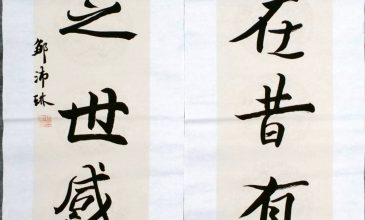 在昔有
之世感
邹沛琳